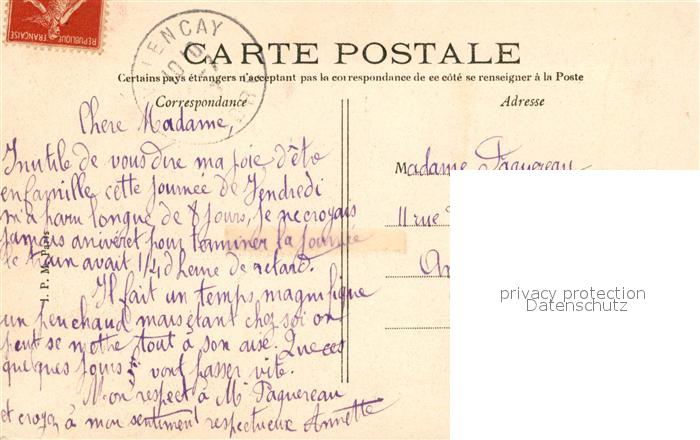 REPUBLIQUE FRANÇAISE
CARTE POSTALE
Certains pays étrangers n'acceptant pas la correspondance de ce côté se renseigner à la Poste
Correspondance
Chere Madame,
Inutile de vous dire ma joie d'être
en famille cette journée de Vendredi
m'a paru longue de 8 jours, je ne croyais
jamais arriveret pour terminer la journée
le train avait 1/2 d'heure de retard.
Il fait un temps magnifique
un peu chaud mais étant chez soi on
peut se mettre tout à son aise. Que ces
quelques jours vont passer vite.
Mon respect à Mr Paquereau
et croyez à mon sentiment respectueux Annette
I. P. M. Paris
Adresse
Madame Paquereau
11 rue
An
privacy protection
Datenschutz